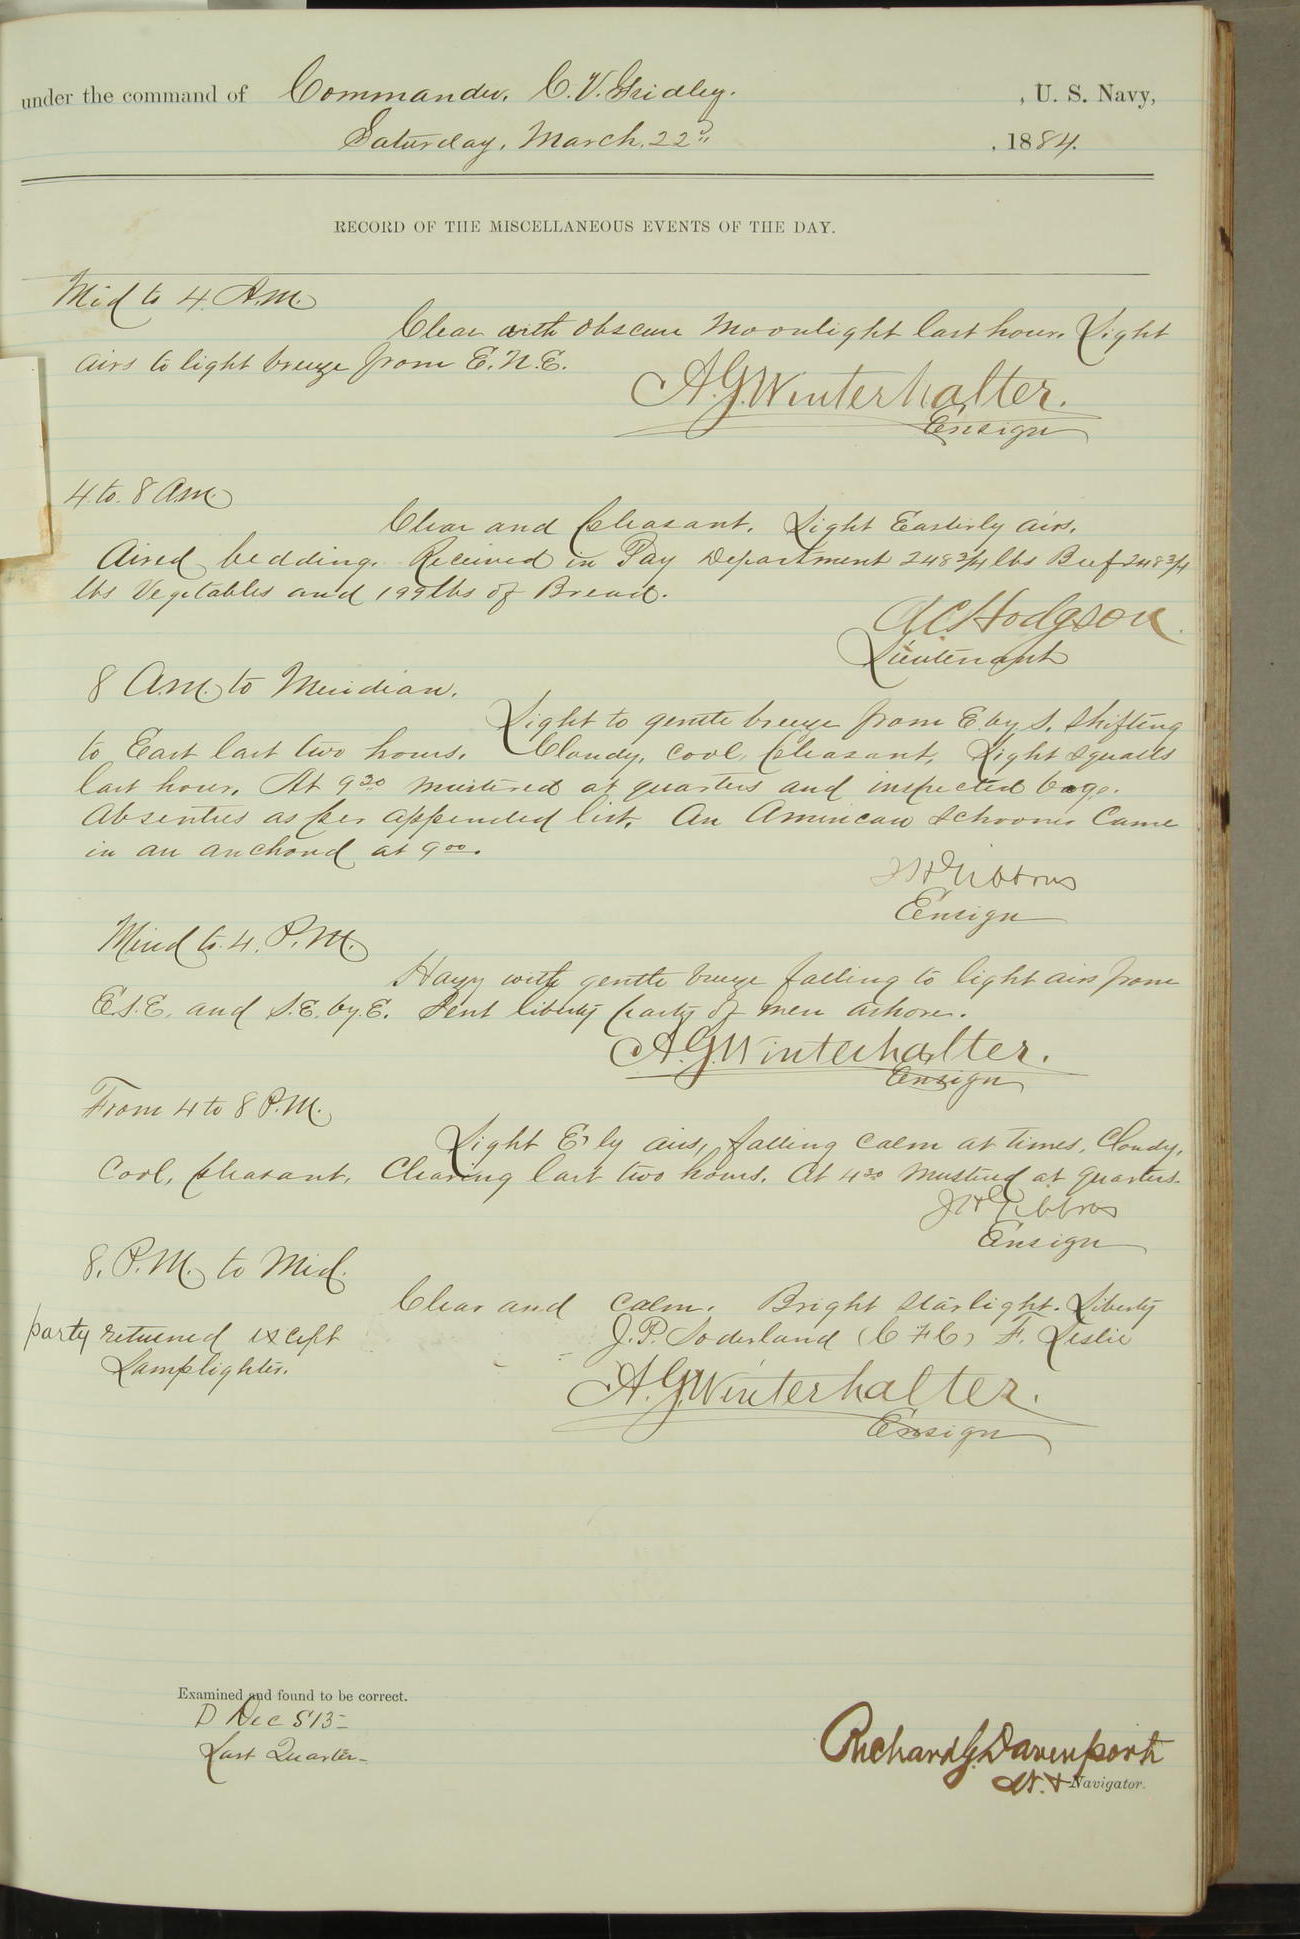 under the command of Commander. C. V. Gridley. , U. S. Navy,
Saturday, March, 22d , 1884.
RECORD OF THE MISCELLANEOUS EVENTS OF THE DAY.
Mid to 4 A.M.
Clear with obscure Moonlight last hour. Light
airs to light breeze from E.N.E.
A.G. Winterhalter.
Ensign
4 to 8 A.M.
Clear and pleasant. Light Easterly airs.
Aired bedding. Received in Pay Department 248 3/4 lbs Beef 248 3/4
lbs Vegetables and 199 lbs of Bread.
A C Hodgson
Lieutenant
8 A.M. to Meridian.
Light to gentle breeze from E. by S. shifting
to East last two hours. Cloudy, cool, pleasant, Light squalls
last hour. At 9 30 mustered at quarters and inspected bags.
Absentees as per appended list. An American schooner came
in an anchored at 9 00.
J H Gibbons
Ensign
Merid to 4. P.M.
Hazy with gentle breeze falling to light airs from
E.S.E. and S.E. by E. Sent liberty party of men ashore.
A.G. Winterhalter.
Ensign
From 4 to 8 P.M.
Light E'ly airs, falling calm at times, Cloudy,
cool, pleasant, Clearing last two hours. At 4 30 mustered at quarters.
J H Gibbons
Ensign
8. P.M. to Mid.
Clear and calm. Bright starlight. Liberty
party returned except J. P. Soderland (C F C) F. Leslie
Lamplighter.
A.G. Winterhalter.
Ensign
Examined and found to be correct.
D Dec S 13-
Last Quarter-
Richard G. Davenport
Lt. & Navigator.